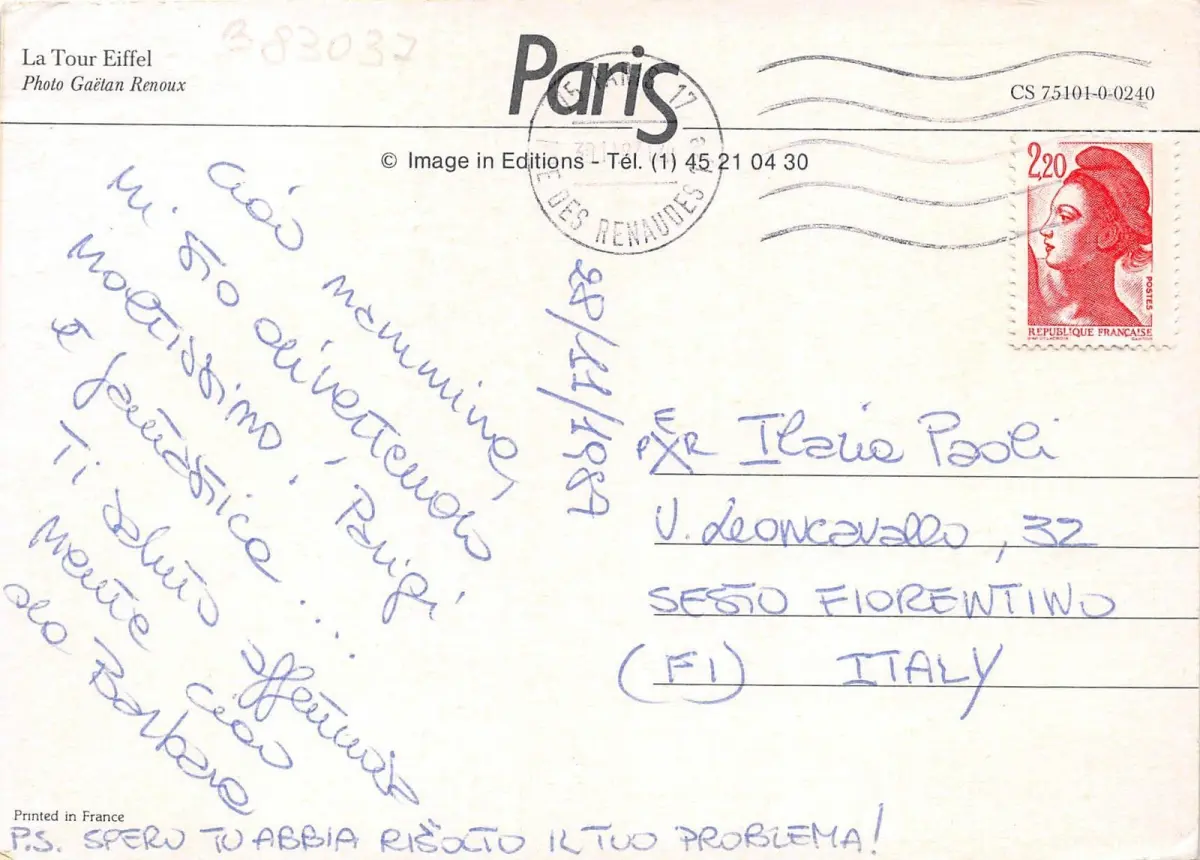 B 83037
La Tour Eiffel
Photo Gaëtan Renoux
Paris
CS 75101-0-0240
© Image in Editions - Tél. (1) 45 21 04 30
17
DES RENAUDES
2,20
POSTES
REPUBLIQUE FRANÇAISE
Ciao mammina,
mi sto divertendo
moltissimo, Parigi
è fantastica ...
Ti saluto affettuosa
mente ciao
da Barbara
28/11/1989
PER Ilaria Paoli
V. Leoncavallo, 32
SESTO FIORENTINO
(FI) ITALY
Printed in France
P.S. SPERO TU ABBIA RISOLTO IL TUO PROBLEMA!